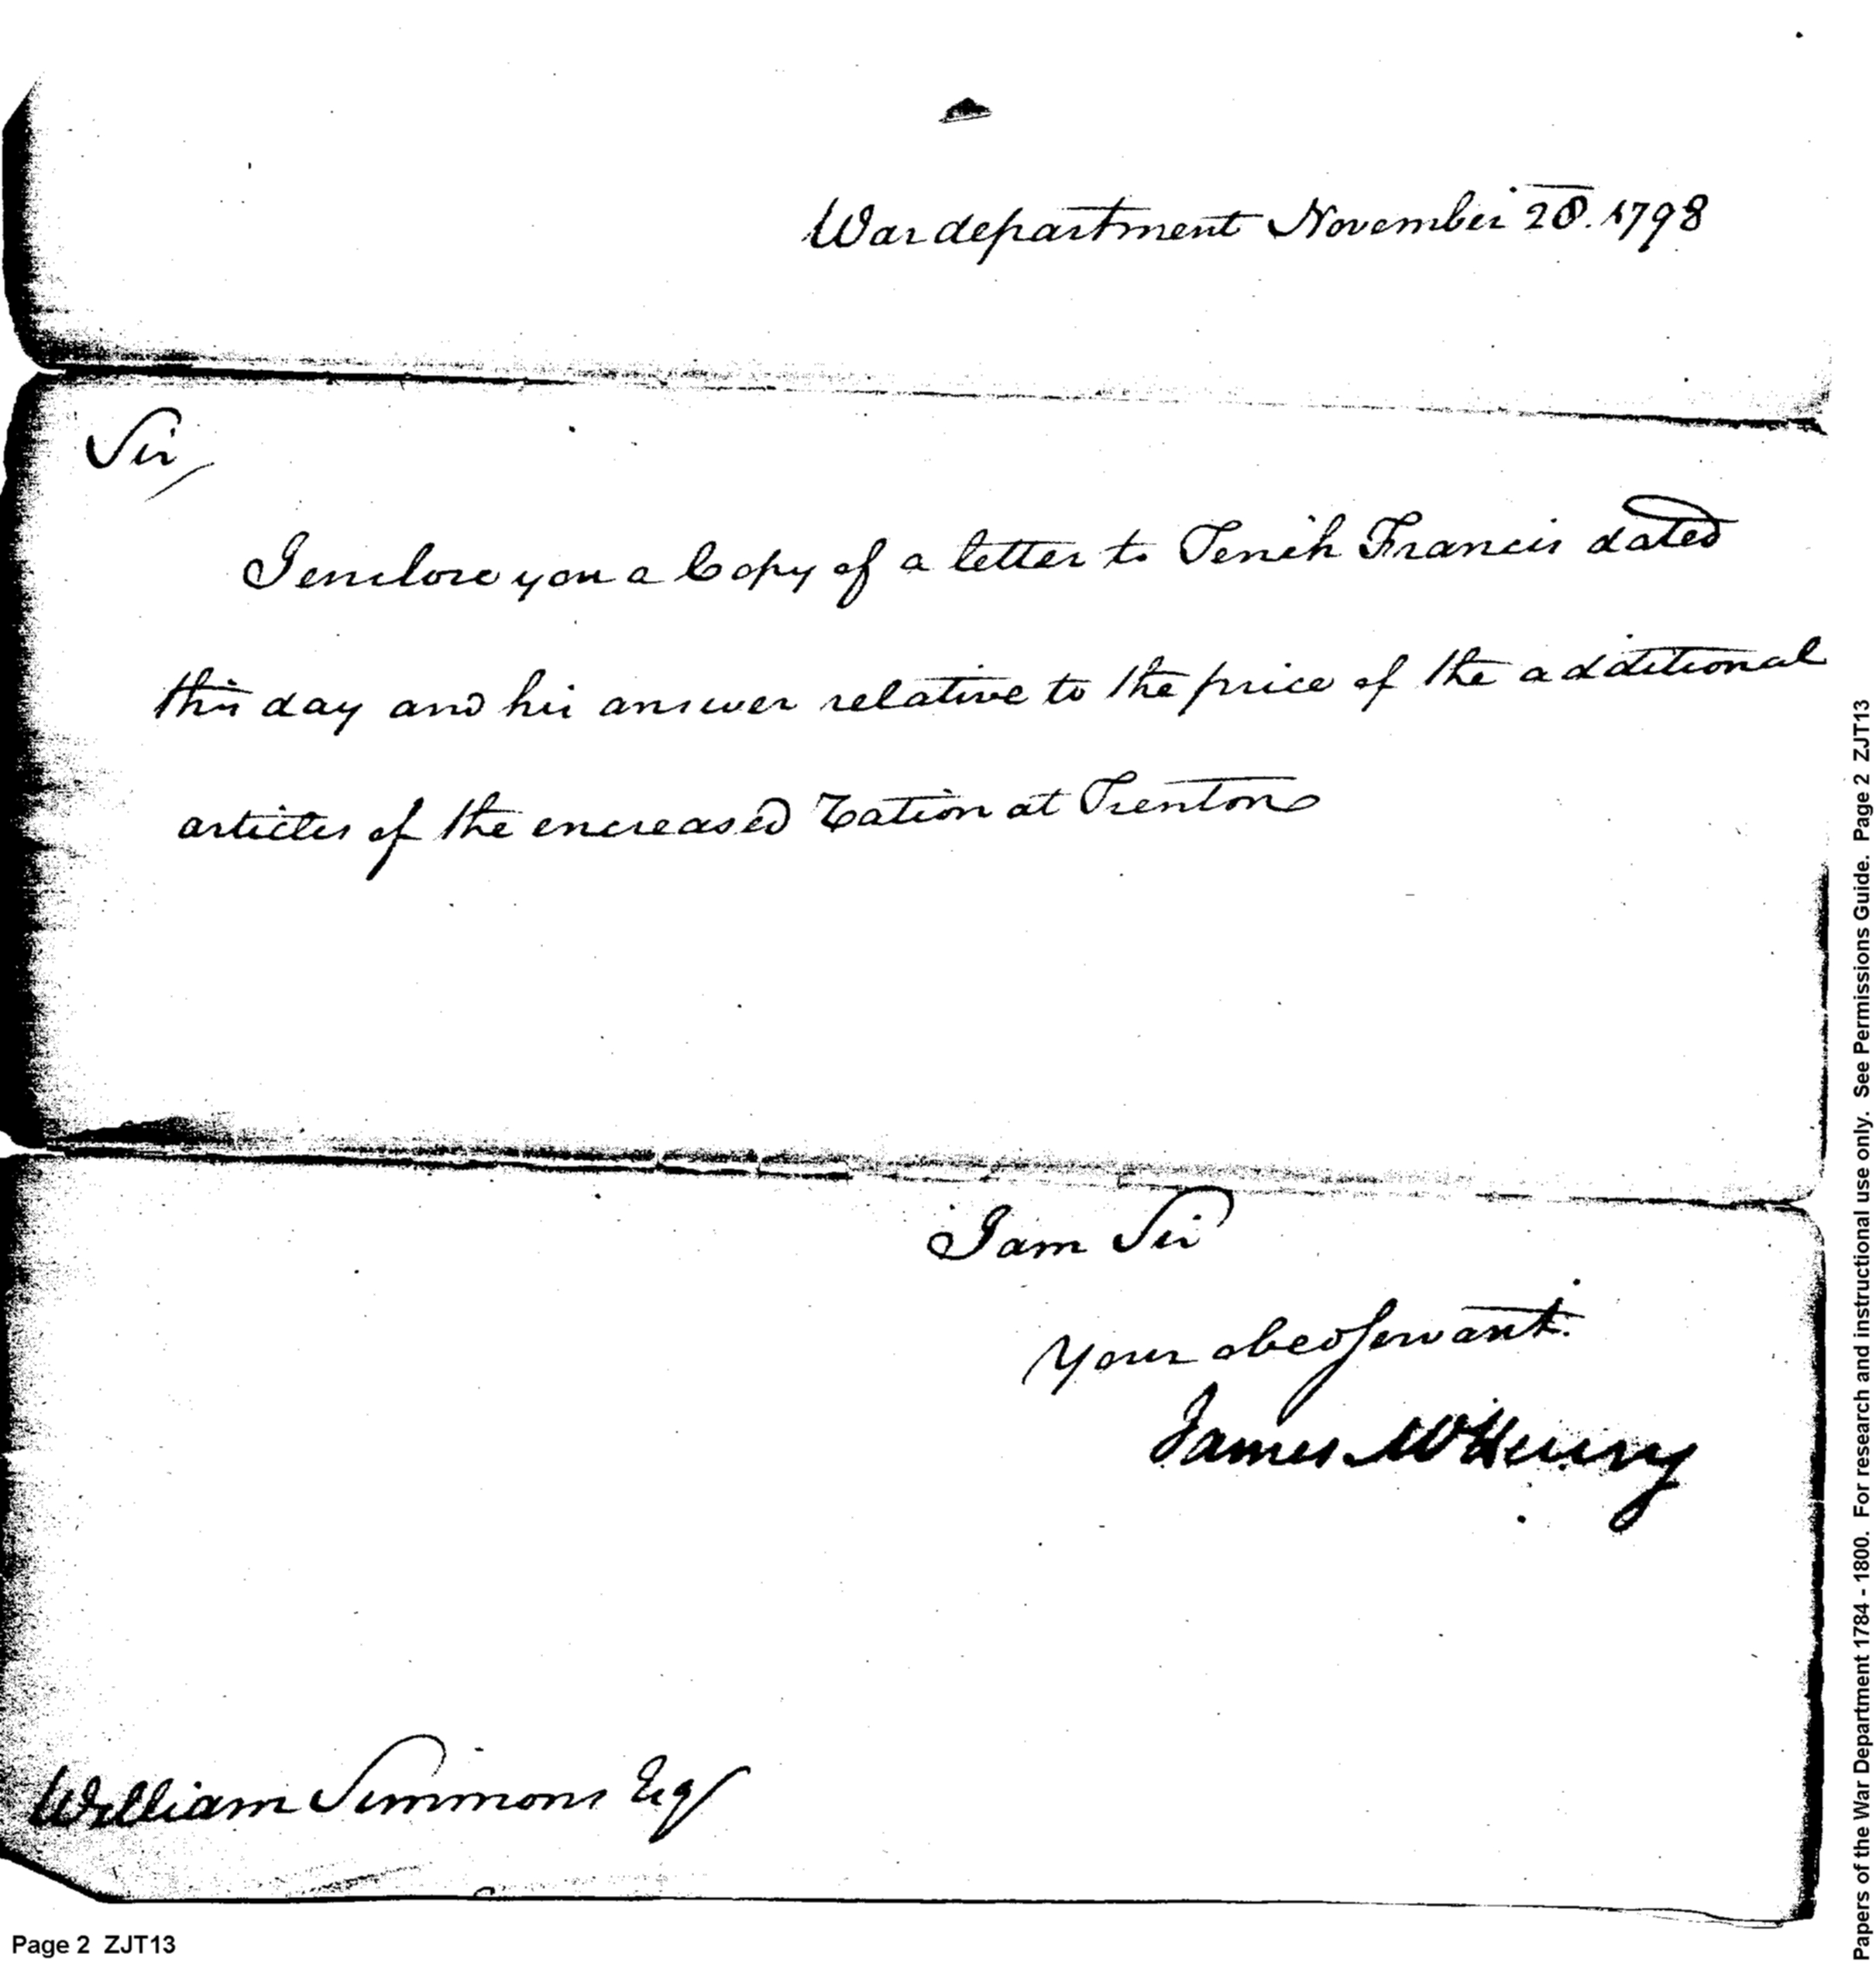 War department November 28. 1798
Sir
I enclose you a Copy of a letter to Tench Francis dated
this day and his answer relative to the price of the additional
articles of the encreased Ration at Trenton
I am Sir
Your obed servant.
James McHenry
William Simmons Esq
Page 2 ZJT13
Papers of the War Department 1784 - 1800. For research and instructional use only. See Permissions Guide. Page 2 ZJT13